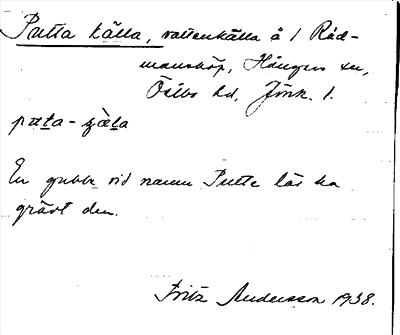 Putta källa, vattenkälla å 1 Råd-
manshöp, Hångers sn,
Östbo hd, Jönk. l.
pɷta - ɕæ̀ta
En gubbe vid namn Putte lär ha
grävt den.
Fritz Andersson 1938.